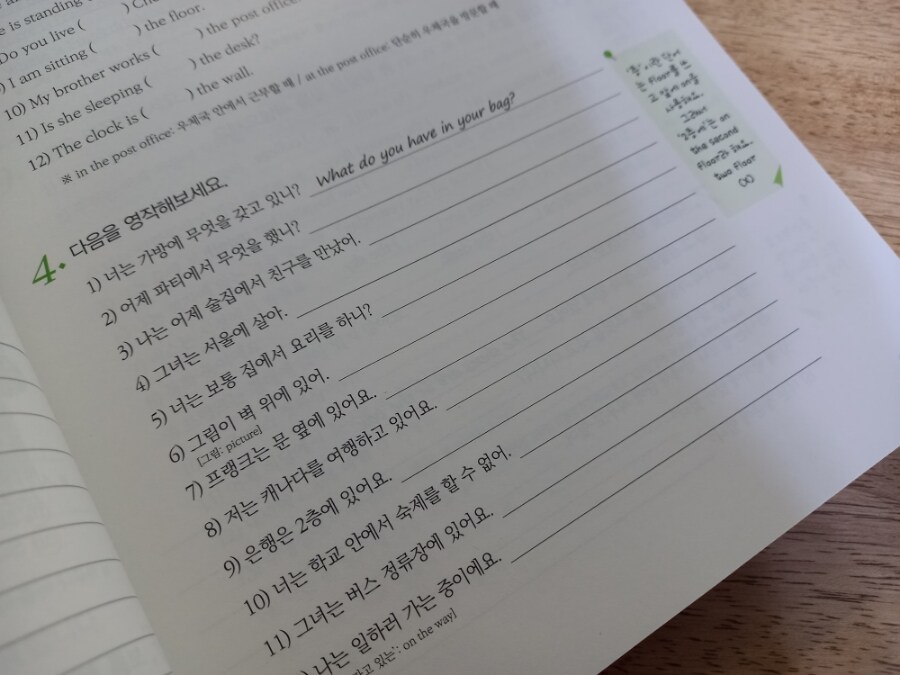 e is standing (
Do you live (        ) Ch
) I am sitting (        ) the floor.
10) My brother works (        ) the post office.
11) Is she sleeping (        ) the desk?
12) The clock is (        ) the wall.
※ in the post office: 우체국 안에서 근무할 때 / at the post office: 단순히 우체국을 방문할 때
4. 다음을 영작해보세요.
1) 너는 가방에 무엇을 갖고 있니? What do you have in your bag?
2) 어제 파티에서 무엇을 했니?
3) 나는 어제 술집에서 친구를 만났어.
4) 그녀는 서울에 살아.
5) 너는 보통 집에서 요리를 하니?
6) 그림이 벽 위에 있어.
[그림: picture]
7) 프랭크는 문 옆에 있어요.
8) 저는 캐나다를 여행하고 있어요.
9) 은행은 2층에 있어요.
10) 너는 학교 안에서 숙제를 할 수 없어.
11) 그녀는 버스 정류장에 있어요.
) 나는 일하러 가는 중이에요.
가고 있는: on the way]
'층'이란 단어
는 floor를 쓰
고 앞에 in을
그래서
'2층에'는 on
the second
floor라 해요.
two floor
(X)